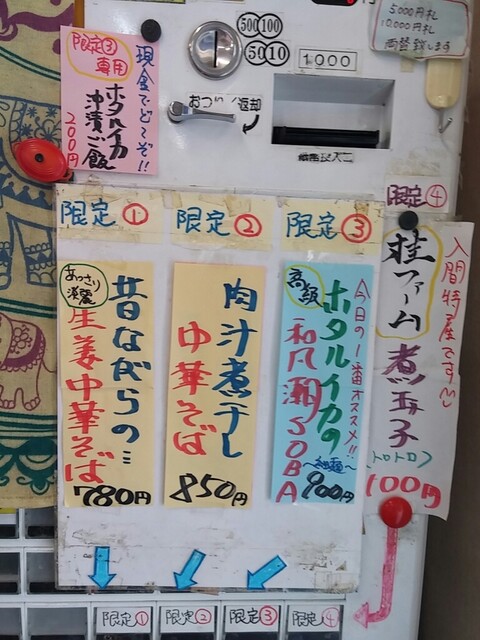 500 100
50 10
1000
5000円札
10,000円札
両替致します
おつり/返却
紙幣投入口
限定③
専用
現金でどーぞ!!
ホタルイカ
沖漬ご飯
200円
限定①
限定②
限定③
限定④
あっさり
淡麗
昔ながらの…
生姜中華そば
780円
肉汁煮干し
中華そば
850円
今日の1番オススメ!!
高級
ホタルイカの
和風潮SOBA
〜細麺〜
900円
入間特産です
桂ファーム
煮玉子
(トロトロ)
100円
限定①
限定②
限定③
限定④